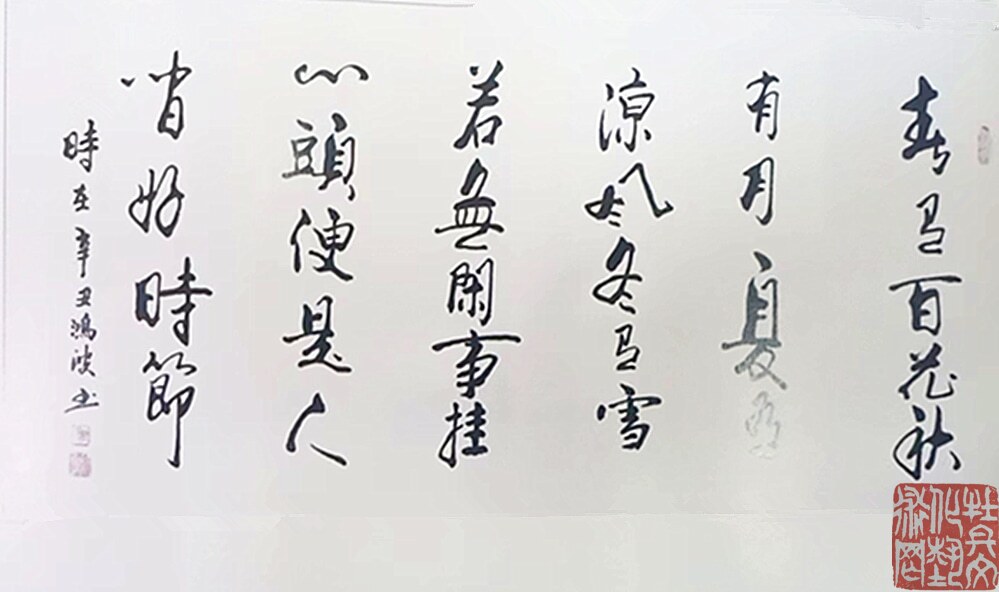 春有百花秋
有月夏有
涼風冬有雪
若無閑事挂
心頭便是人
間好時節
時在辛丑鴻波书